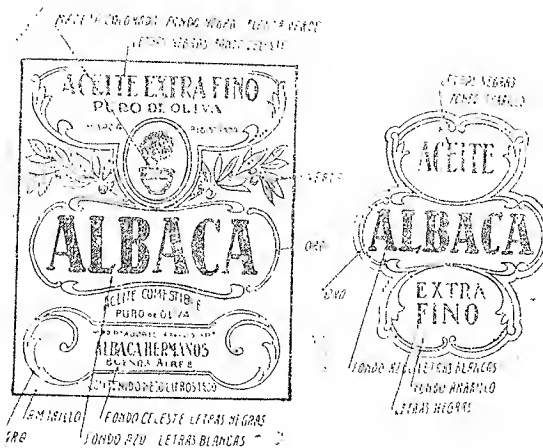 MACETA COLORADO FONDO NEGRO PLANTA VERDE
LETRAS NEGRAS FONDO CELESTE
ACEITE EXTRA FINO
PURO DE OLIVA
MARCA REGISTRADA
VERDE
ALBACA
ORO
ACEITE COMESTIBLE
PURO DE OLIVA
ALBACA HERMANOS
BUENOS AIRES
CONTENIDO
AMARILLO
FONDO CELESTE LETRAS NEGRAS
LETRAS BLANCAS
LETRAS NEGRAS
FONDO
ACEITE
ALBACA
ORO
EXTRA
FINO
FONDO LETRAS BLANCAS
FONDO AMARILLO
LETRAS NEGRAS